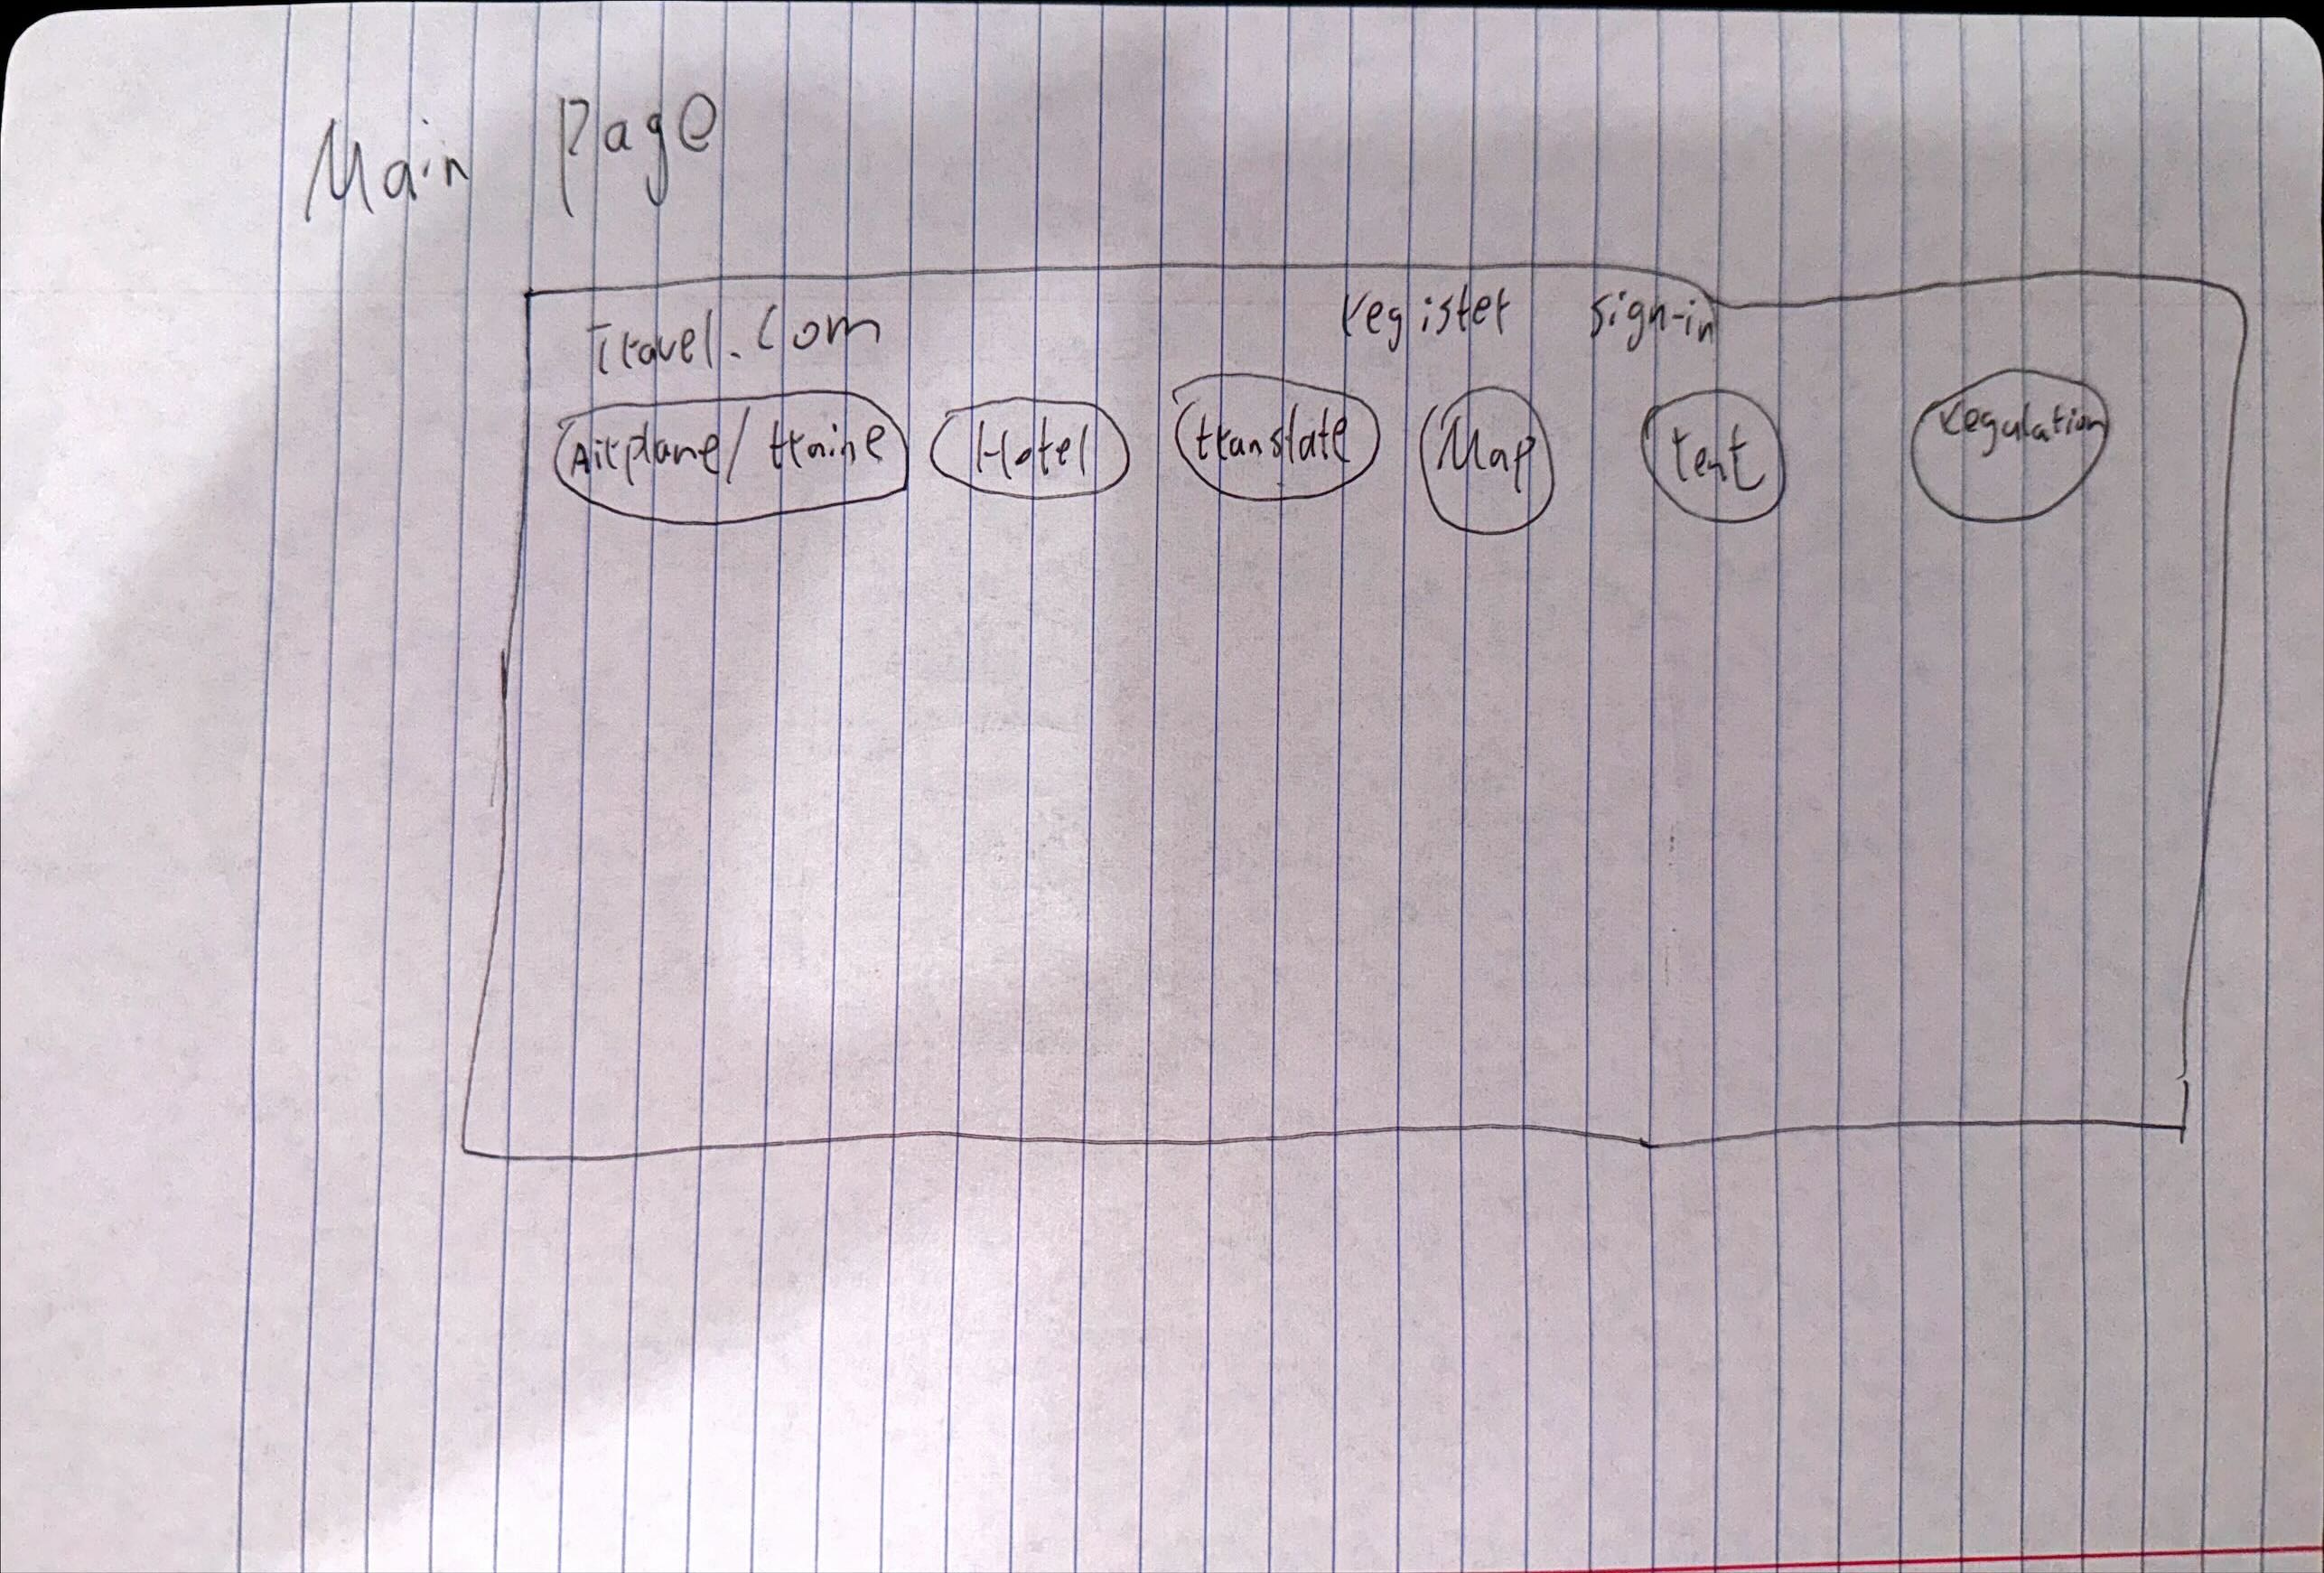 Main Page
Travel.com register sign-in
Airplane/traine Hotel translate Map rent regulation